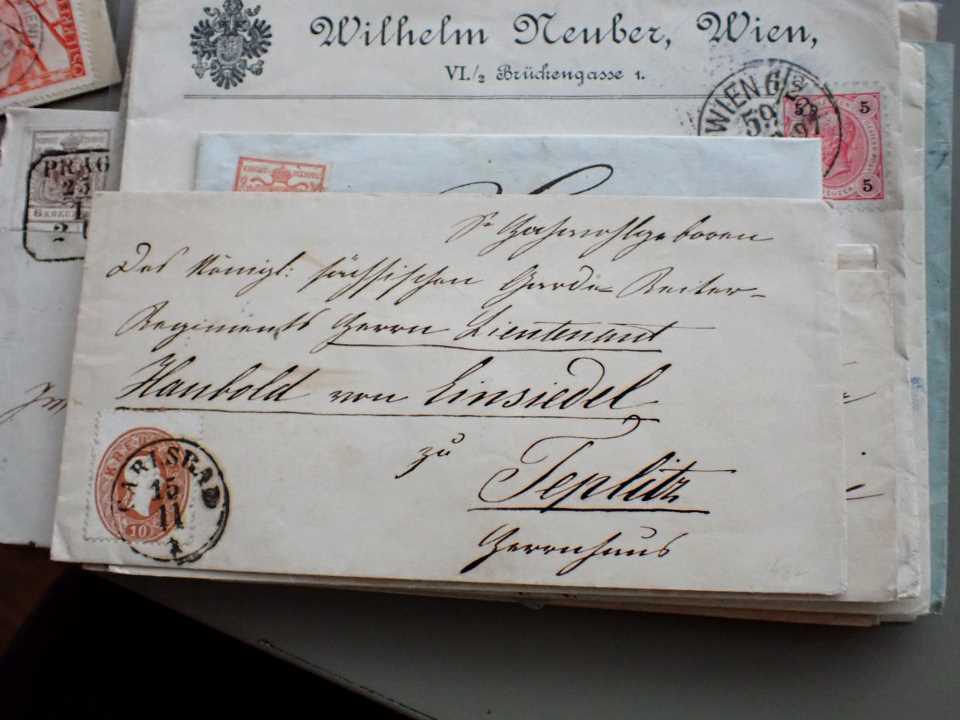 Wilhelm Neuber, Wien,
VI./2 Brückengasse 1.
WIEN 6/2
59
97
5 5
5 5
PRAG
25
1
6 KREUZER
Sr Hochwohlgeboren
Des Königl: sächsischen Garde-Reiter-
Regiments Herrn Lieutenant
Haubold von Einsiedel
zu
Teplitz
Herrnhaus
CARLSBAD
15
11
KREU
10